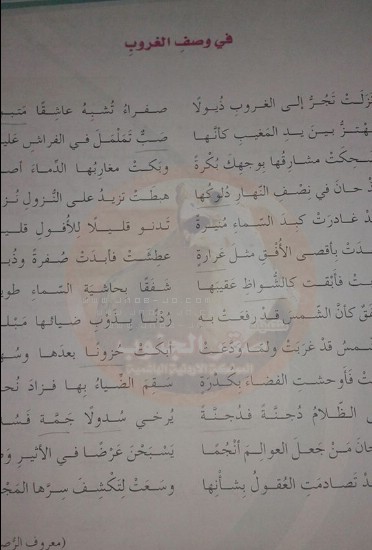 في وصفِ الغروبِ
نَزَلَتْ تَجُرُّ إلى الغروبِ ذُيولًا صفراءَ تُشبِهُ عاشِقًا
تَهْتَزُّ بينَ يدِ المَغيبِ كأنَّها صَبٌّ تَمَلْمَلَ في الفراشِ
ضَحِكَتْ مشارِقُها بِوجهِكَ بُكْرَةً وبَكَتْ مغارِبُها الدِّماءَ
حانَ في نِصْفِ النَّهارِ دُلوكُها هبطَتْ تزيدُ على النُّزولِ
غادَرَتْ كَبِدَ السَّماءِ مُنيرَةً تدنو قليلًا للأُفولِ
بأقصى الأُفْقِ مثلَ عَرارَةٍ عطِشَتْ فأبدَتْ صُفرةً
فأبْقَت كالشُّواظِ عَقيبَها شَفَقًا بحاشيةِ السَّماءِ
كأنَّ الشَّمسَ قدْ رفعَتْ به رُدْنًا بِذَوْبِ ضيائها
قدْ غرَبَتْ ولمّا ودَّعَتْ أبكَتْ حُزونًا بعدَها
فأوحشَتِ الفضاءَ بكُدْرَةٍ سَقِمَ الضِّياءُ بها فزادَ
الظَّلامُ دُجنَّةً فدُجنَّةً يُرخي سُدولًا جَمَّةً
مَنْ جَعلَ العوالِمَ أنْجُمًا يَسْبَحْنَ عَرْضًا في الأثيرِ
تَصادَمَتِ العُقولُ بِشأنِها وسَعَتْ لِتَكْشِفَ سِرَّها
(معروف